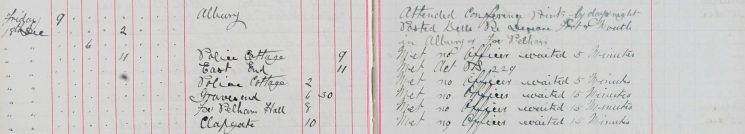 Friday 9 Albury Attended Conference Points by day & night
18th Dec 2 Posted Bills Re Foot & Mouth
" " 6 in Albury & Fx Pelham
" " 11 Police Cottage 9 Met no Officer waited 5 Minutes
" " East End 11 Met Act P.S. 229
" " Police Cottage 2 Met no Officer waited 5 Minutes
" " Gravesend 6 30 Met no Officer waited 15 Minutes
" " Fx Pelham Hall 8 Met no Officer waited 15 Minutes
" " Clapgate 10 Met no Officer waited 15 Minutes